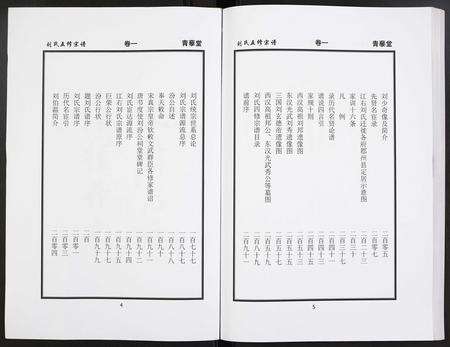 刘氏五修宗谱 卷一 青藜堂
刘氏续宗世系总论 一百七十七
刘氏宗谱源流总序 一百八十七
汾公自述 一百八十八
奉天敕命 一百九十
宋真宗皇帝钦敕文武群臣各修家谱诏 一百九十一
唐节度使刘汾公祠堂碑记 一百九十二
刘氏宗谱源流序 一百九十四
江右刘氏宗谱原序 一百九十七
巨荣公行状 一百九十九
汾公行状 一百九十九
题刘氏谱 二百
刘氏谱序 二百零一
历代名宦引 二百零三
刘伯墓序 二百零四
4
刘氏五修宗谱 卷一 青藜堂
刘少奇像及简介 二百零五
先贤名宦录 二百零七
江右刘氏迁徙各府郡州县定居示意图 二百二十三
家训十六条 二百三十
凡例 二百三十七
录历代名贤论谱 二百四十一
谱说四言引 二百四十三
家规十则 二百四十五
东汉光武刘秀遗像图 二百五十三
西汉高祖刘邦遗像图 二百五十四
三国刘玄德帝遗像图 二百五十五
西汉高祖邦公、东汉光武秀公等墓图 二百五十六
刘氏四修宗谱目录 二百五十八
谱前序 二百五十九
5